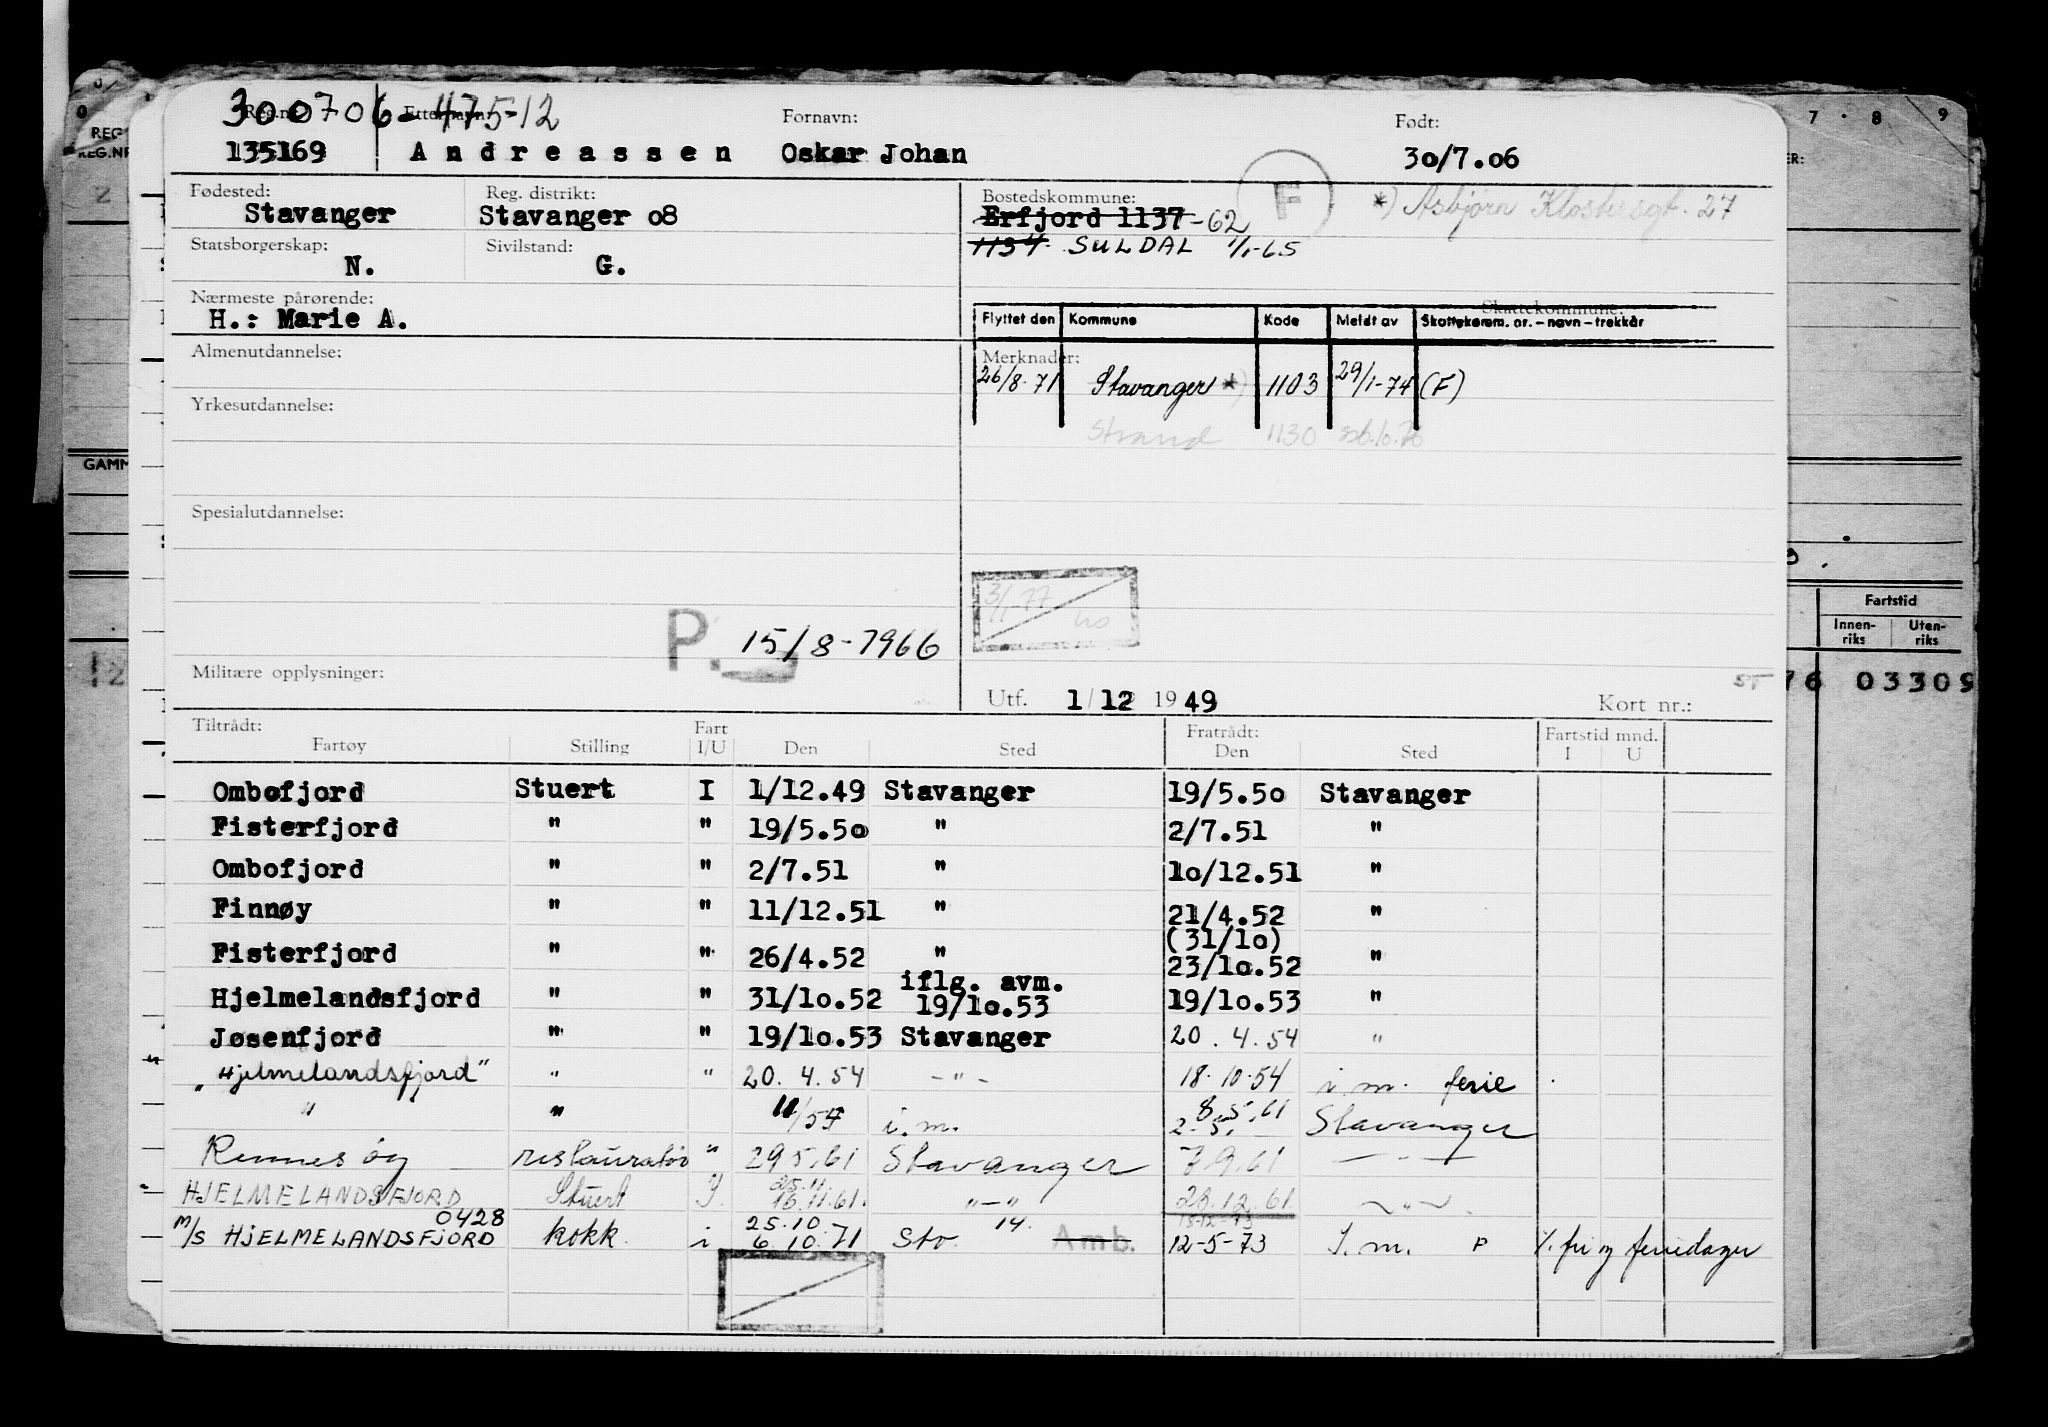 300706-475-12
Reg.nr. Etternavn: Fornavn: Født:
135169 Andreassen Oskar Johan 30/7.06
Fødested: Reg. distrikt: Bostedskommune: F *) Asbjørn Klostersgt. 27
Stavanger Stavanger o8 Erfjord 1137-62
Statsborgerskap: Sivilstand: 1134 SULDAL 1/1-65
N. G.
Nærmeste pårørende: Skattekommune:
H.: Marie A. Flyttet den Kommune Kode Meldt av Skattekomm. nr. – navn – trekkår
Almenutdannelse: Merknader:
26/8-71 Stavanger *) 1103 29/1-74 (F)
Yrkesutdannelse:
Strand 1130
Spesialutdannelse:
3/1-77
P. 15/8-1966
Militære opplysninger:
Utf. 1/12 1949 Kort nr.:
Tiltrådt: Fart Fratrådt: Fartstid mnd.
Fartøy Stilling I/U Den Sted Den Sted I U
Ombofjord Stuert I 1/12.49 Stavanger 19/5.5o Stavanger
Fisterfjord " " 19/5.5o " 2/7.51 "
Ombofjord " " 2/7.51 " 1o/12.51 "
Finnøy " " 11/12.51 " 21/4.52 "
(31/1o)
Fisterfjord " " 26/4.52 " 23/1o.52 "
iflg. avm.
Hjelmelandsfjord " " 31/1o.52 19/1o.53 19/1o.53 "
Jøsenfjord " " 19/1o.53 Stavanger 20.4.54 "
"Hjelmelandsfjord" " " 20.4.54 -"- 18.10.54 i.m. ferie
" " 11/54 i.m. 8.5.61 Stavanger
2.5.
Rennesøy restauratør " 29.5.61 Stavanger 7.9.61 -"-
25.11.
HJELMELANDSFJORD Stuert I. 16.11.61. "-" 28.12.61 -"-
0428 25.10 14. 18-12-73
M/S HJELMELANDSFJORD kokk i 6.10.71 Stv. Amb. 12-5-73 I.m. P /. fri og feriedager
REG
REG.NR
2
GAMM
12
7 · 8 9
ER:
Fartstid
Innen-
riks
Uten-
riks
76 03309